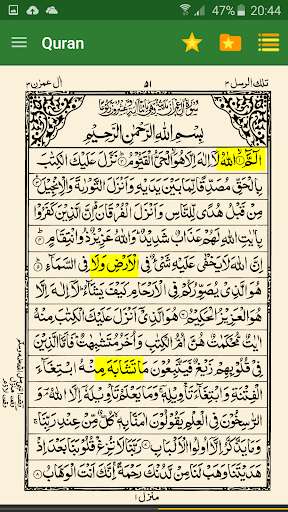 47% 20:44
Quran
تلك الرسل ٣ ٥١ اٰل عمرٰن ٣
بِسْمِ اللّٰهِ الرَّحْمٰنِ الرَّحِيْمِ
الٓمّٓ ۙ اللّٰهُ لَاۤ اِلٰهَ اِلَّا هُوَ الْحَيُّ الْقَيُّوْمُ نَزَّلَ عَلَيْكَ الْكِتٰبَ
بِالْحَقِّ مُصَدِّقًا لِّمَا بَيْنَ يَدَيْهِ وَاَنْزَلَ التَّوْرٰىةَ وَالْاِنْجِيْلَ
مِنْ قَبْلُ هُدًى لِّلنَّاسِ وَاَنْزَلَ الْفُرْقَانَ اِنَّ الَّذِيْنَ كَفَرُوْا
بِاٰيٰتِ اللّٰهِ لَهُمْ عَذَابٌ شَدِيْدٌ وَاللّٰهُ عَزِيْزٌ ذُو انْتِقَامٍ
اِنَّ اللّٰهَ لَا يَخْفٰى عَلَيْهِ شَيْءٌ فِى الْاَرْضِ وَلَا فِى السَّمَآءِ
هُوَ الَّذِيْ يُصَوِّرُكُمْ فِى الْاَرْحَامِ كَيْفَ يَشَآءُ لَاۤ اِلٰهَ اِلَّا
هُوَ الْعَزِيْزُ الْحَكِيْمُ هُوَ الَّذِيْۤ اَنْزَلَ عَلَيْكَ الْكِتٰبَ مِنْهُ
اٰيٰتٌ مُّحْكَمٰتٌ هُنَّ اُمُّ الْكِتٰبِ وَاُخَرُ مُتَشٰبِهٰتٌ فَاَمَّا الَّذِيْنَ
فِيْ قُلُوْبِهِمْ زَيْغٌ فَيَتَّبِعُوْنَ مَا تَشَابَهَ مِنْهُ ابْتِغَآءَ
الْفِتْنَةِ وَابْتِغَآءَ تَاْوِيْلِهٖ وَمَا يَعْلَمُ تَاْوِيْلَهٗۤ اِلَّا اللّٰهُ وَ
الرّٰسِخُوْنَ فِى الْعِلْمِ يَقُوْلُوْنَ اٰمَنَّا بِهٖ كُلٌّ مِّنْ عِنْدِ رَبِّنَا
وَمَا يَذَّكَّرُ اِلَّاۤ اُولُوا الْاَلْبَابِ رَبَّنَا لَا تُزِغْ قُلُوْبَنَا بَعْدَ اِذْ
هَدَيْتَنَا وَهَبْ لَنَا مِنْ لَّدُنْكَ رَحْمَةً اِنَّكَ اَنْتَ الْوَهَّابُ
منزل ١